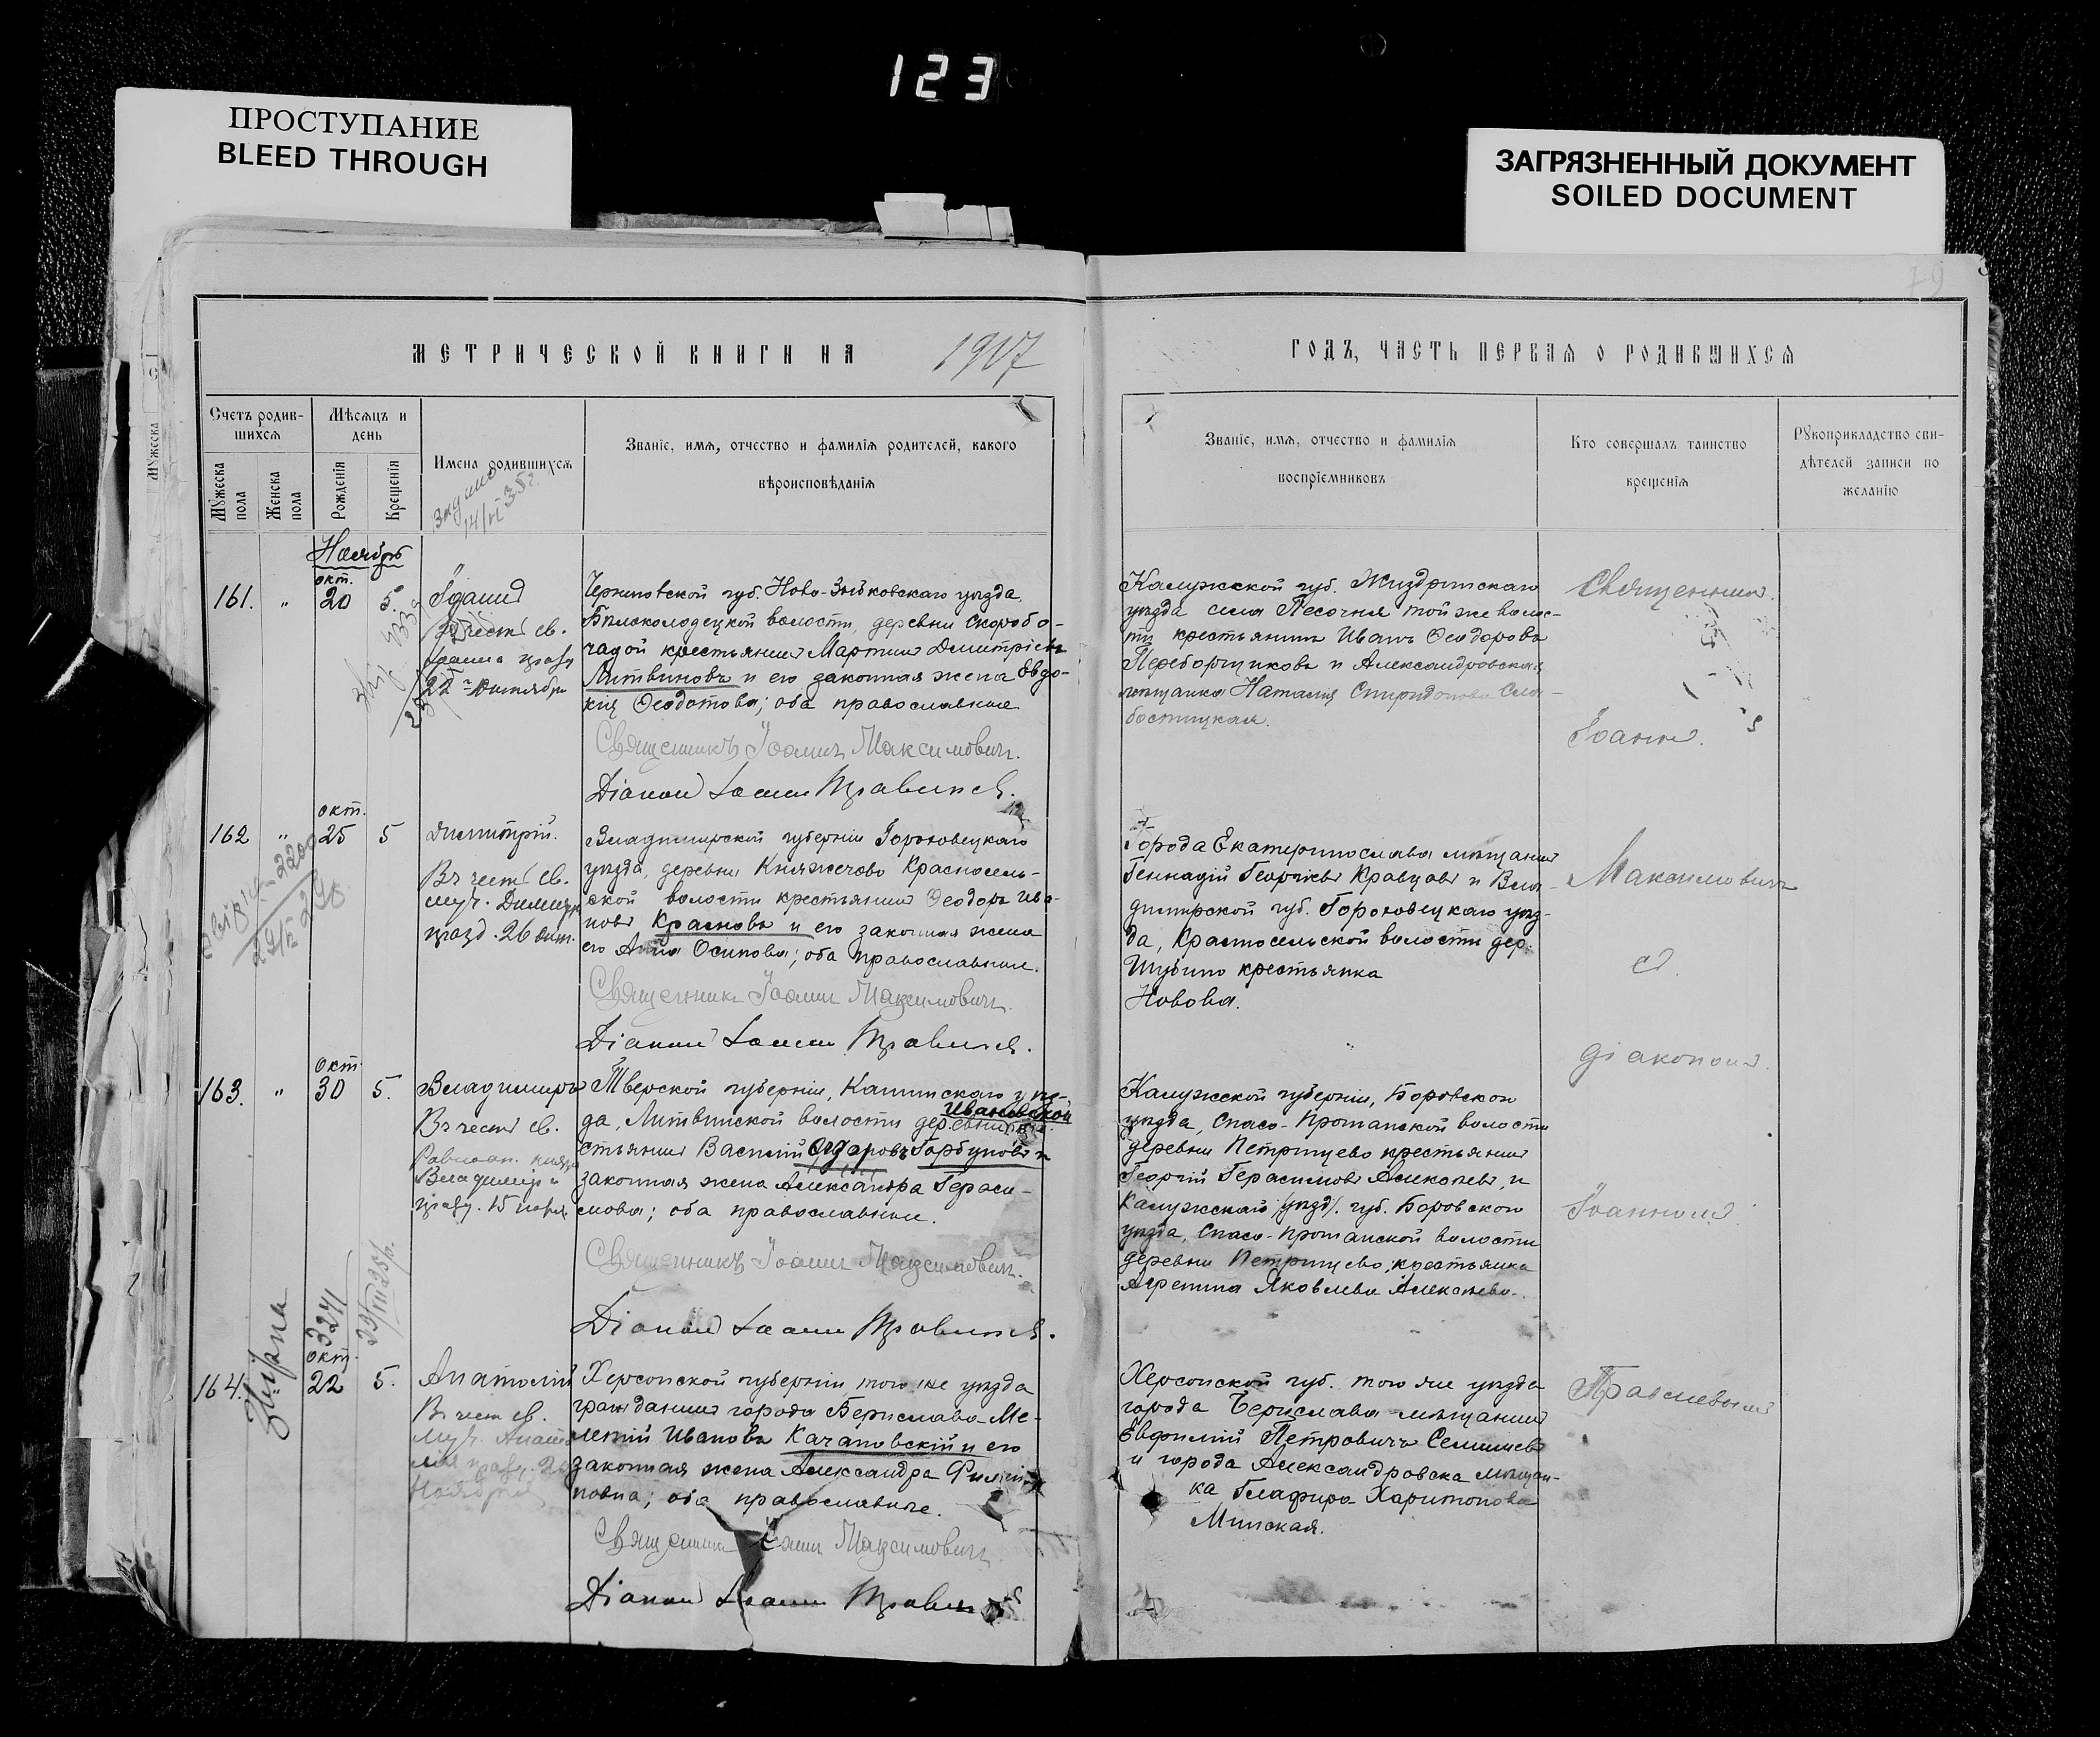 123
ПРОСТУПАНИЕ
BLEED THROUGH
ЗАГРЯЗНЕННЫЙ ДОКУМЕНТ
SOILED DOCUMENT
МЕТРИЧЕСКОЙ КНИГИ НА 1917
ГОДЪ, ЧАСТЬ ПЕРВАЯ О РОДИВШИХСЯ
Счетъ родив-
шихся
Мѣсяцъ и
день
Имена родившихся
Званіе, имя, отчество и фамилія родителей, какого
вѣроисповѣданія
Мужеска
пола
Женска
пола
Рожденія
Крещенія
Званіе, имя, отчество и фамилія
воспріемниковъ
Кто совершалъ таинство
крещенія
Рукоприкладство сви-
дѣтелей записи по
желанію
Мужеска
14/VI-35г.
Ноябрь
161. " окт. 20 5.
Въ честь св.
22 Октября
Черниговской губ. Ново-Зыбковскаго уѣзда,
Бѣлоколодецкой волости, деревни Скоробо-
гатой крестьянинъ Мартинъ Димитріевъ
Литвиновъ и его законная жена Евдо-
кія Ѳеодотова; оба православные
Священникъ Іоаннъ Максимовичъ.
Діаконъ Іоаннъ Правилевъ.
Калужской губ. Жиздринскаго
уѣзда села Песочня той же волос-
ти крестьянинъ Иванъ Ѳеодоровъ
Переборщиковъ и Александровская
мѣщанка Наталія Спиридонова Сло-
бостицкая.
Священникъ
Іоаннъ.
162 " окт. 25 5 Димитрій.
Въ честь св.
муч. Димитр.
празд. 26 окт.
Владимирской губерніи Гороховецкаго
уѣзда, деревни Княжечово Красносель-
ской волости крестьянинъ Ѳеодоръ Ива-
новъ Красновъ и его законная жена
его Анна Осипова; оба православные.
Священникъ Іоаннъ Максимовичъ.
Діаконъ Іоаннъ Правилевъ.
Города Екатеринослава мѣщанинъ
Геннадій Георгіевъ Кравцовъ и Вла-
димирской губ. Гороховецкаго уѣз-
да, Красносельской волости дер.
Шубино крестьянка
Новова.
Максимовичъ
съ
діакономъ
163. " окт. 30 5. Владимиръ
Въ честь св.
Равноап. князя
Владиміра
празд. 15 іюля
Тверской губерніи, Кашинскаго уѣз-
да, Литвинской волости деревни Ивановской кре-
стьянинъ Василій Ѳедоровъ Горбуновъ и
законная жена Александра Гераси-
мова; оба православные.
Священникъ Іоаннъ Максимовичъ.
Діаконъ Іоаннъ Правилевъ.
Калужской губерніи, Боровскаго
уѣзда, Спасо-Прогнанской волости
деревни Петрищево крестьянинъ
Георгій Герасимовъ Алексѣевъ, и
Калужской губ. Боровскаго
уѣзда, Спасо-Прогнанской волости
деревни Петрищево, крестьянка
Агрепина Яковлева Алексѣева.
Іоанномъ
3271
164. окт. 22 5. Анатолій
Въ честь св.
муч. Анато-
лія празд. 20
Ноября
Херсонской губерніи того же уѣзда
гражданинъ города Берислава Ме-
летій Ивановъ Качановскій и его
законная жена Александра Филип-
повна; оба православные.
Священникъ Іоаннъ Максимовичъ.
Діаконъ Іоаннъ Правилевъ
Херсонской губ. того же уѣзда
города Берислава мѣщанинъ
Евфимій Петровичъ Селишевъ
и города Александровска мѣщан-
ка Глафира Харитонова
Минская.
Правилевымъ